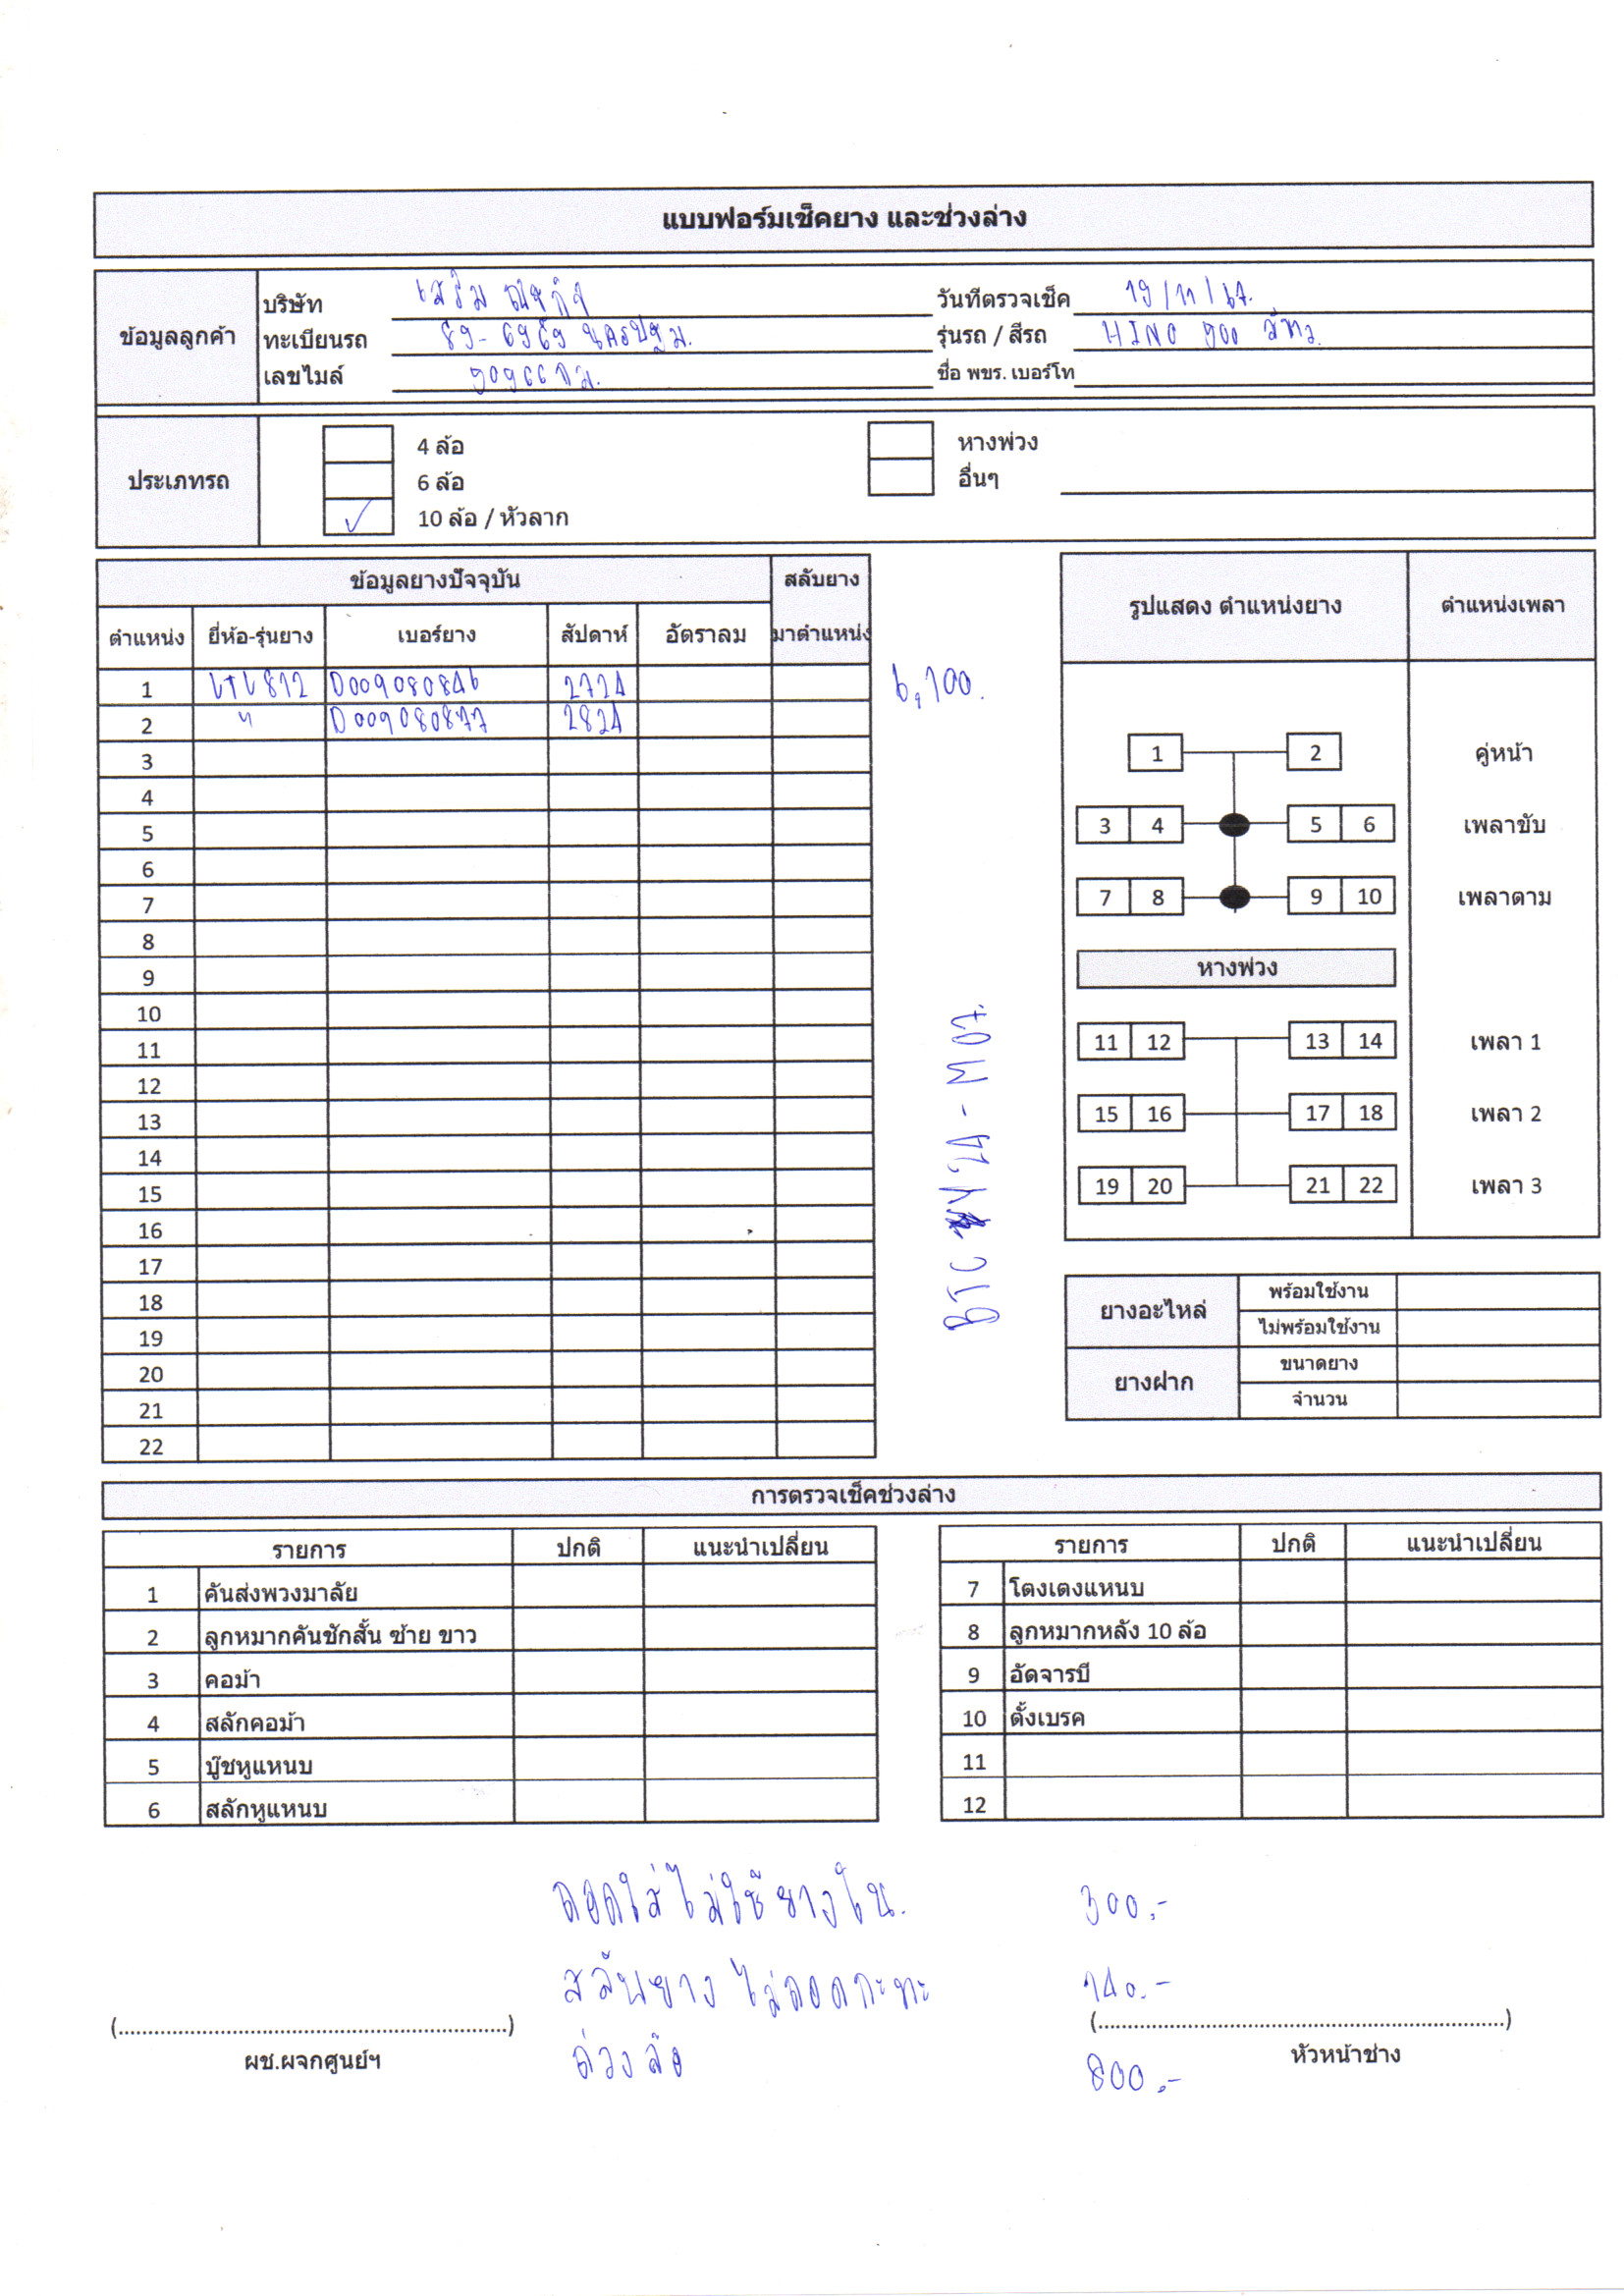 แบบฟอร์มเช็คยาง และช่วงล่าง
ข้อมูลลูกค้า
บริษัท เสริม
วันที่ตรวจเช็ค 19/11/67.
ทะเบียนรถ นครปฐม.
รุ่นรถ / สีรถ HINO 500
เลขไมล์ กม.
ชื่อ พขร. เบอร์โท
ประเภทรถ
4 ล้อ
หางพ่วง
6 ล้อ
อื่นๆ
✓ 10 ล้อ / หัวลาก
ข้อมูลยางปัจจุบัน สลับยาง
ตำแหน่ง ยี่ห้อ-รุ่นยาง เบอร์ยาง สัปดาห์ อัตราลม มาตำแหน่ง
1 D009080846 2724 6,100.
2 " D009080877 2824
3
4
5
6
7
8
9
10
11
12
13
14
15
16
17
18
19
20
21
22
24-M07.
รูปแสดง ตำแหน่งยาง ตำแหน่งเพลา
1 2 คู่หน้า
3 4 5 6 เพลาขับ
7 8 9 10 เพลาตาม
หางพ่วง
11 12 13 14 เพลา 1
15 16 17 18 เพลา 2
19 20 21 22 เพลา 3
ยางอะไหล่ พร้อมใช้งาน
ไม่พร้อมใช้งาน
ยางฝาก ขนาดยาง
จำนวน
การตรวจเช็คช่วงล่าง
รายการ ปกติ แนะนำเปลี่ยน
1 คันส่งพวงมาลัย
2 ลูกหมากคันชักสั้น ซ้าย ขาว
3 คอม้า
4 สลักคอม้า
5 บู๊ชหูแหนบ
6 สลักหูแหนบ
รายการ ปกติ แนะนำเปลี่ยน
7 โตงเตงแหนบ
8 ลูกหมากหลัง 10 ล้อ
9 อัดจารบี
10 ตั้งเบรค
11
12
ถอดใส่ไม่ใช้ยางใน. 300.-
สลับยาง ไม่ถอดกะทะ 140.-
ถ่วงล้อ 800.-
(....................) (....................)
ผช.ผจกศูนย์ฯ หัวหน้าช่าง